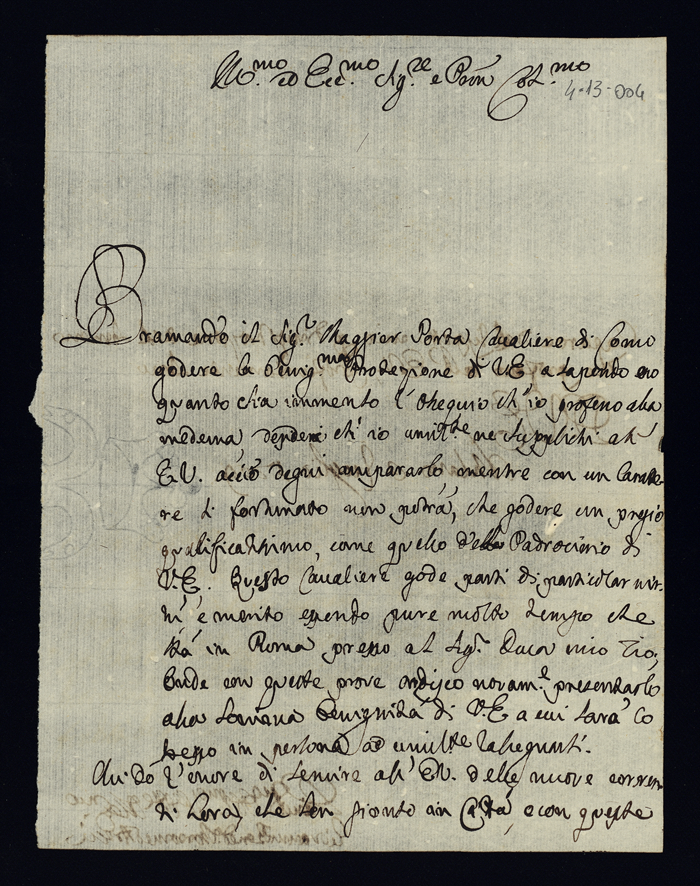 Ill.mo ed Ecc.mo Sig.re e Pron Col.mo
4-13-004
Bramando il Sig.r Maggior Porta Cavaliere di Como
godere la benig.ma Protezione di V.E. a sapendo
quanto sia immenso l'ossequio ch'io professo alla
medema, ch'io umil.te ne supplichi all'
E.V. acciò degni ampararlo, mentre con un Caratte-
re di fortunato non potrà, che godere un pregio
qualificatissimo, come quello della Padrocinio di
V.E. Questo Cavaliere gode parti di particolar vir-
tù e merito essendo pure molto tempo che
stà in Roma presso al Sig.r Duca mio Zio,
Onde con queste prove ardisco novam.e presentarlo
alla somma benignità di V.E. a cui sarà Co
stesso in persona ad umil.te rassegnarsi.
Qui dò l'onore di servire all' E.V. delle nuove corren
ti Lora, che son gionto in Città, e con queste